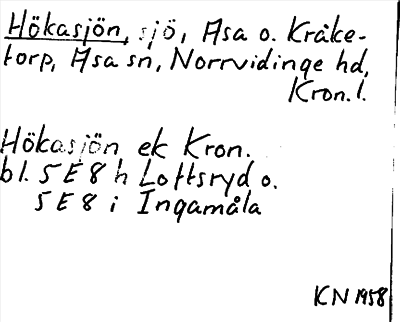 Hökasjön, sjö, Asa o. Kråke-
torp, Asa sn, Norrvidinge hd,
Kron. l.
Hökasjön ek Kron.
bl. 5 E 8 h Lottsryd o.
5 E 8 i Ingamåla
KN 1958